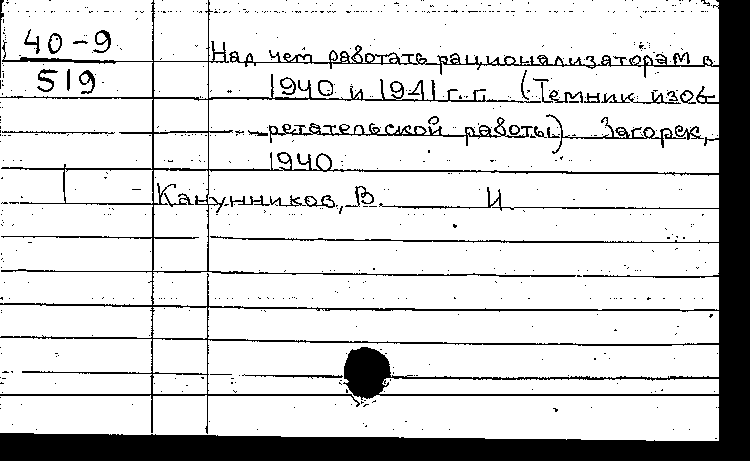 40-9
519
Над чем работать рационализаторам в
1940 и 1941 г.г. (Темник изоб-
ретательской работы) Загорск,
1940.
Канунников, В. И.